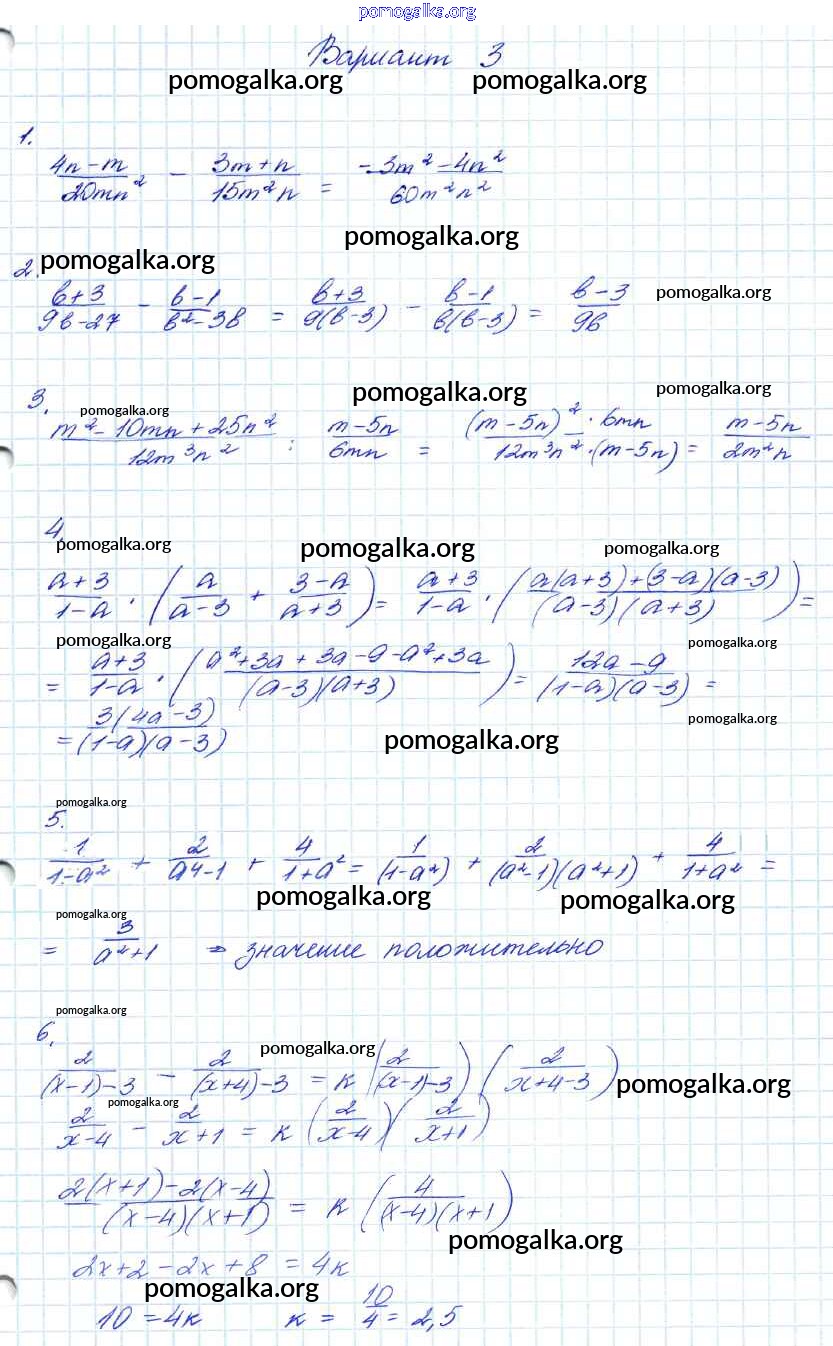 pomogalka.org
Вариант 3
pomogalka.org pomogalka.org
1.
(4n-m)/(20mn²) - (3m+n)/(15m²n) = (-3m²-4n²)/(60m²n²)
pomogalka.org
2. pomogalka.org
(b+3)/(9b-27) - (b-1)/(b²-3b) = (b+3)/(9(b-3)) - (b-1)/(b(b-3)) = (b-3)/(9b) pomogalka.org
pomogalka.org pomogalka.org
3. pomogalka.org
(m²-10mn+25n²)/(12m³n²) : (m-5n)/(6mn) = ((m-5n)²·6mn)/(12m³n²·(m-5n)) = (m-5n)/(2m²n)
4.
pomogalka.org pomogalka.org pomogalka.org
(a+3)/(1-a) · (a/(a-3) + (3-a)/(a+3)) = (a+3)/(1-a) · ((a(a+3)+(3-a)(a-3))/((a-3)(a+3))) =
pomogalka.org pomogalka.org
= (a+3)/(1-a) · ((a²+3a+3a-9-a²+3a)/((a-3)(a+3))) = (12a-9)/((1-a)(a-3)) =
= 3(4a-3)/((1-a)(a-3)) pomogalka.org
pomogalka.org
pomogalka.org
5.
1/(1-a²) + 2/(a⁴-1) + 4/(1+a²) = 1/(1-a²) + 2/((a²-1)(a²+1)) + 4/(1+a²) =
pomogalka.org pomogalka.org
pomogalka.org
= 3/(a²+1) ⇒ значение положительно
pomogalka.org
6.
pomogalka.org
2/((x-1)-3) - 2/((x+4)-3) = к (2/((x-1)-3)) (2/(x+4-3)) pomogalka.org
pomogalka.org
2/(x-4) - 2/(x+1) = к (2/(x-4)) (2/(x+1))
(2(x+1)-2(x-4))/((x-4)(x+1)) = к (4/((x-4)(x+1)))
pomogalka.org
2x+2-2x+8 = 4к
pomogalka.org
10 = 4к к = 10/4 = 2,5